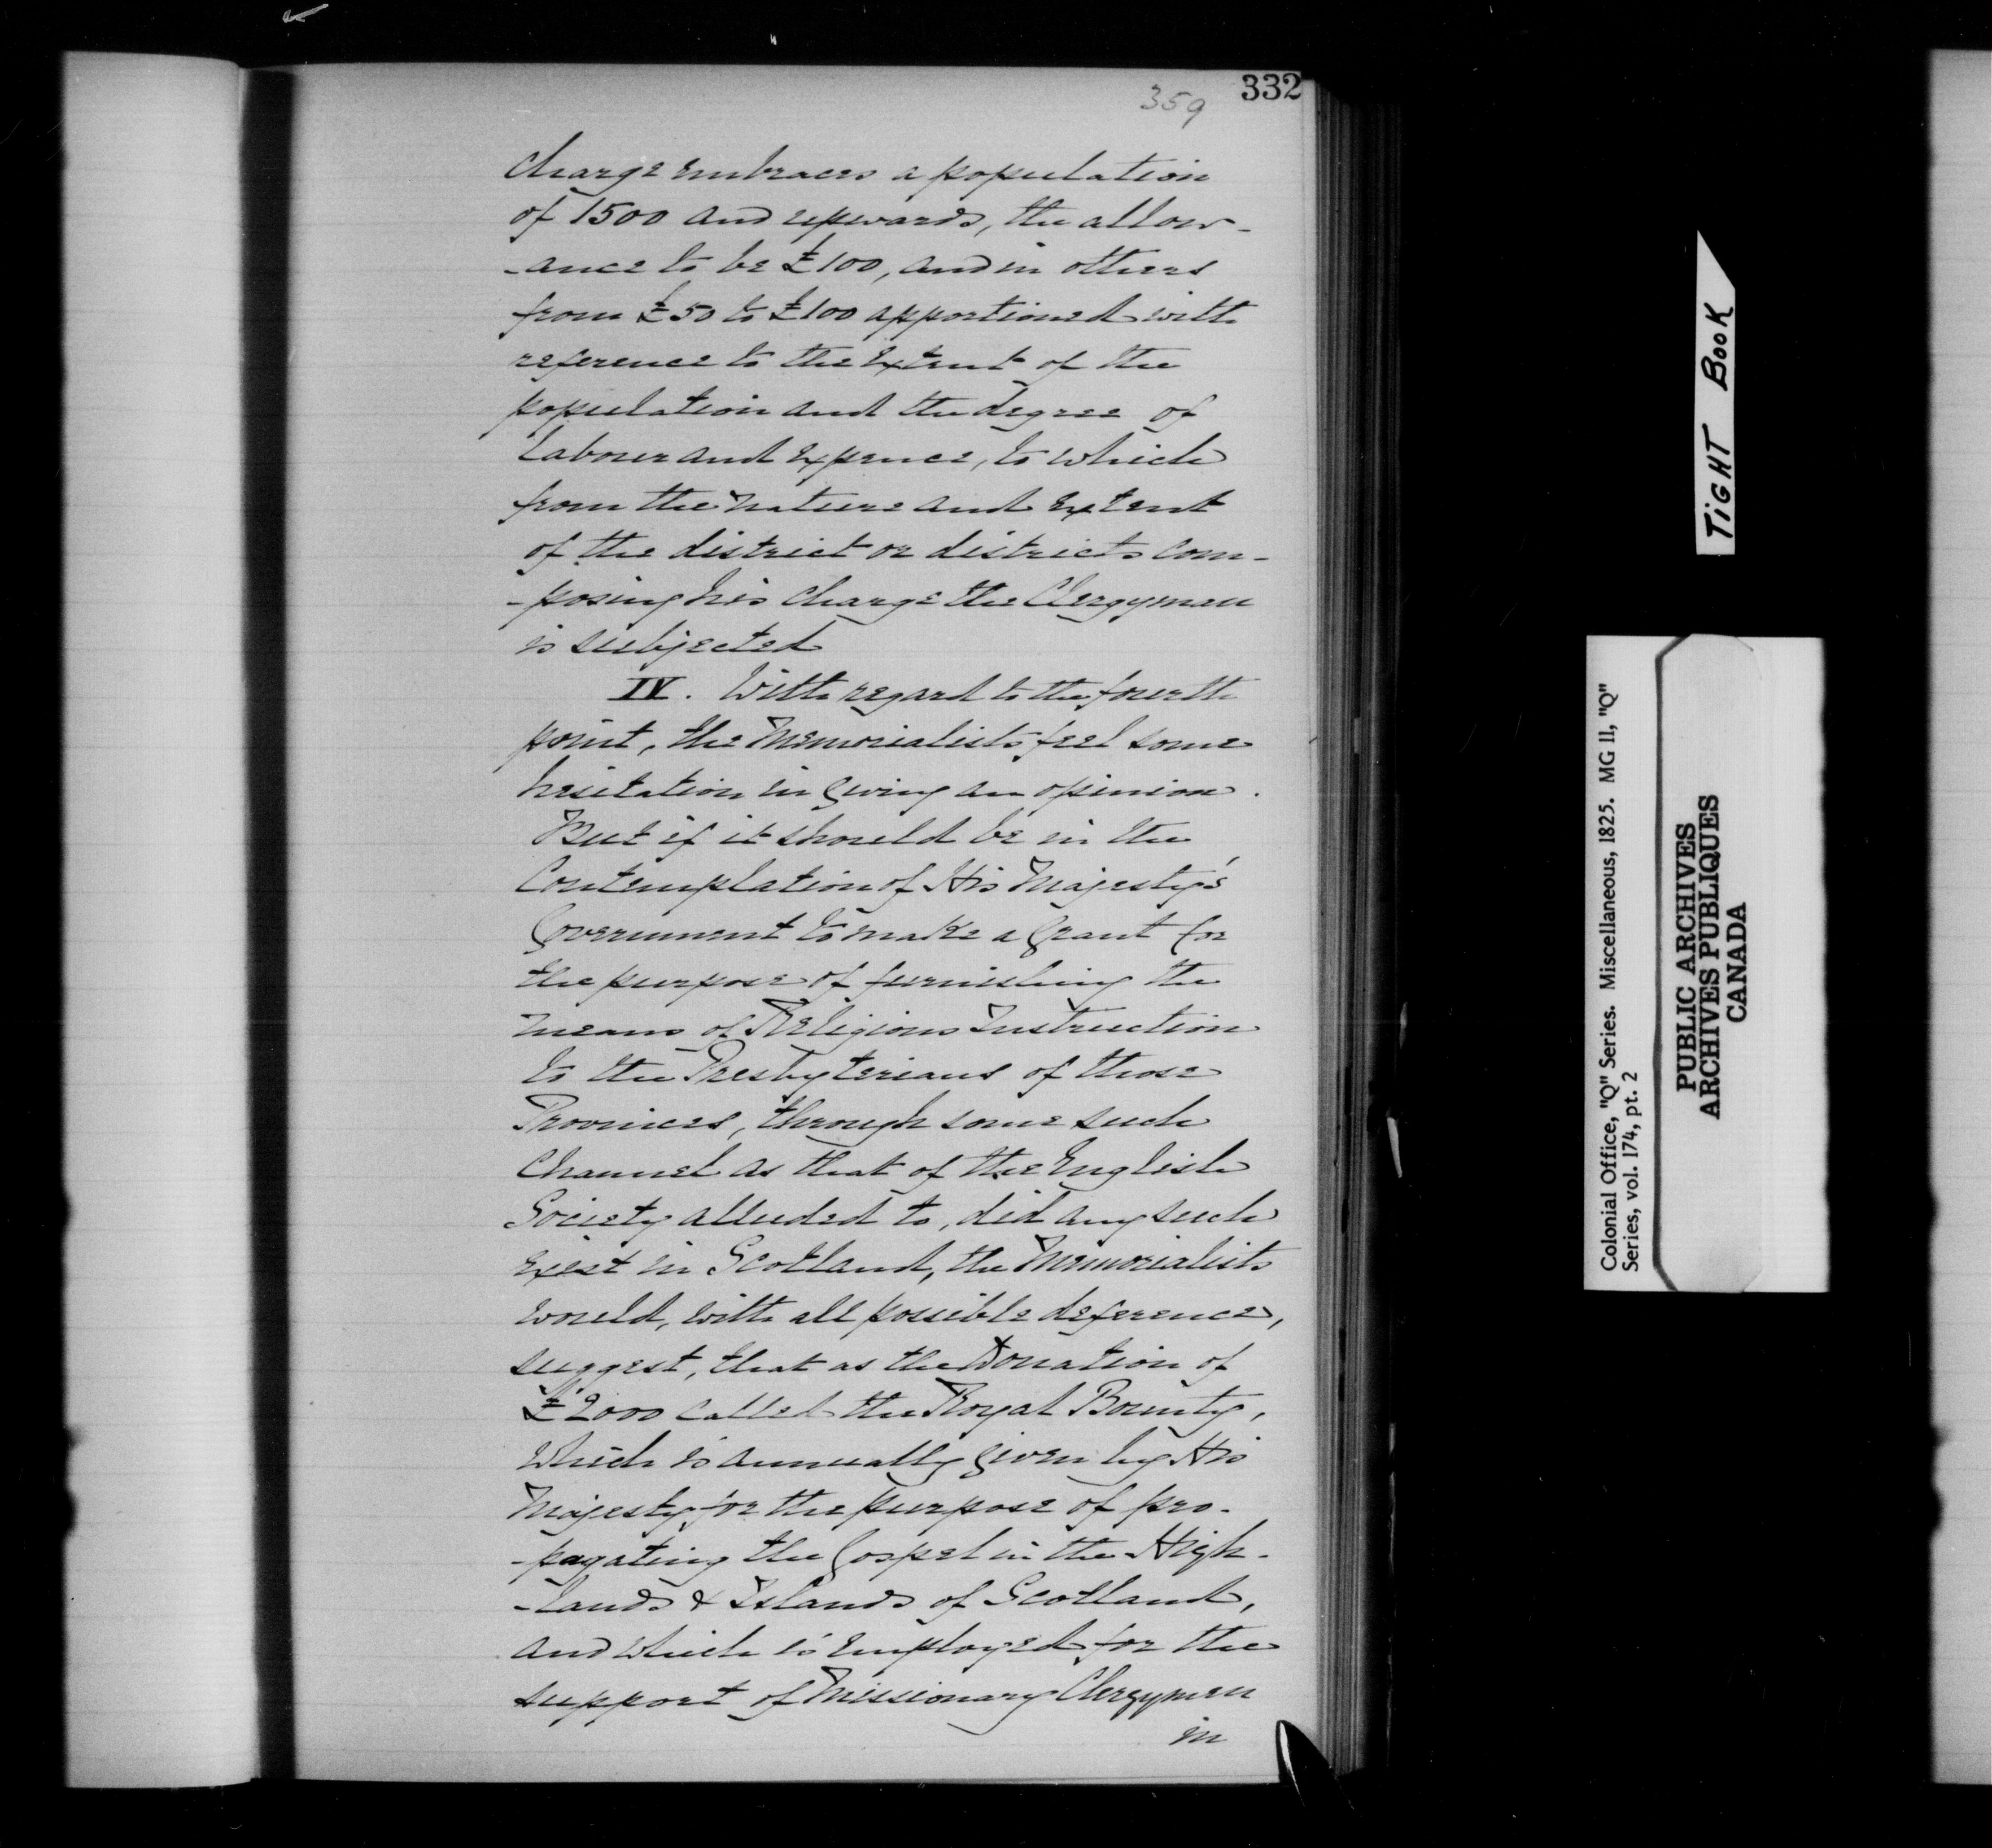 332
359
charge embraces a population
of 1500 and upwards, the allow-
-ance to be £100, and in others
from £50 to £100 apportioned with
reference to the extent of the
population and the degree of
labour and expence, to which
from the nature and extent
of the district or districts com-
-posing his charge the Clergyman
is subjected
IV. With regard to the fourth
point, the Memorialists feel some
hesitation in giving an opinion.
But if it should be in the
Contemplation of His Majesty's
Government to make a grant for
the purpose of furnishing the
means of Religious Instruction
to the Presbyterians of those
Provinces, through some such
Channel as that of the English
Society alluded to, did any such
exist in Scotland, the Memorialists
would, with all possible deference,
suggest, that as the Donation of
£2000 called the Royal Bounty,
which is annually given by His
Majesty for the purpose of pro-
-pagating the Gospel in the High-
-lands & Islands of Scotland,
and which is employed for the
support of Missionary Clergymen
in
TIGHT BOOK
Colonial Office, "Q" Series. Miscellaneous, 1825. MG 11, "Q"
Series, vol. 174, pt. 2
PUBLIC ARCHIVES
ARCHIVES PUBLIQUES
CANADA